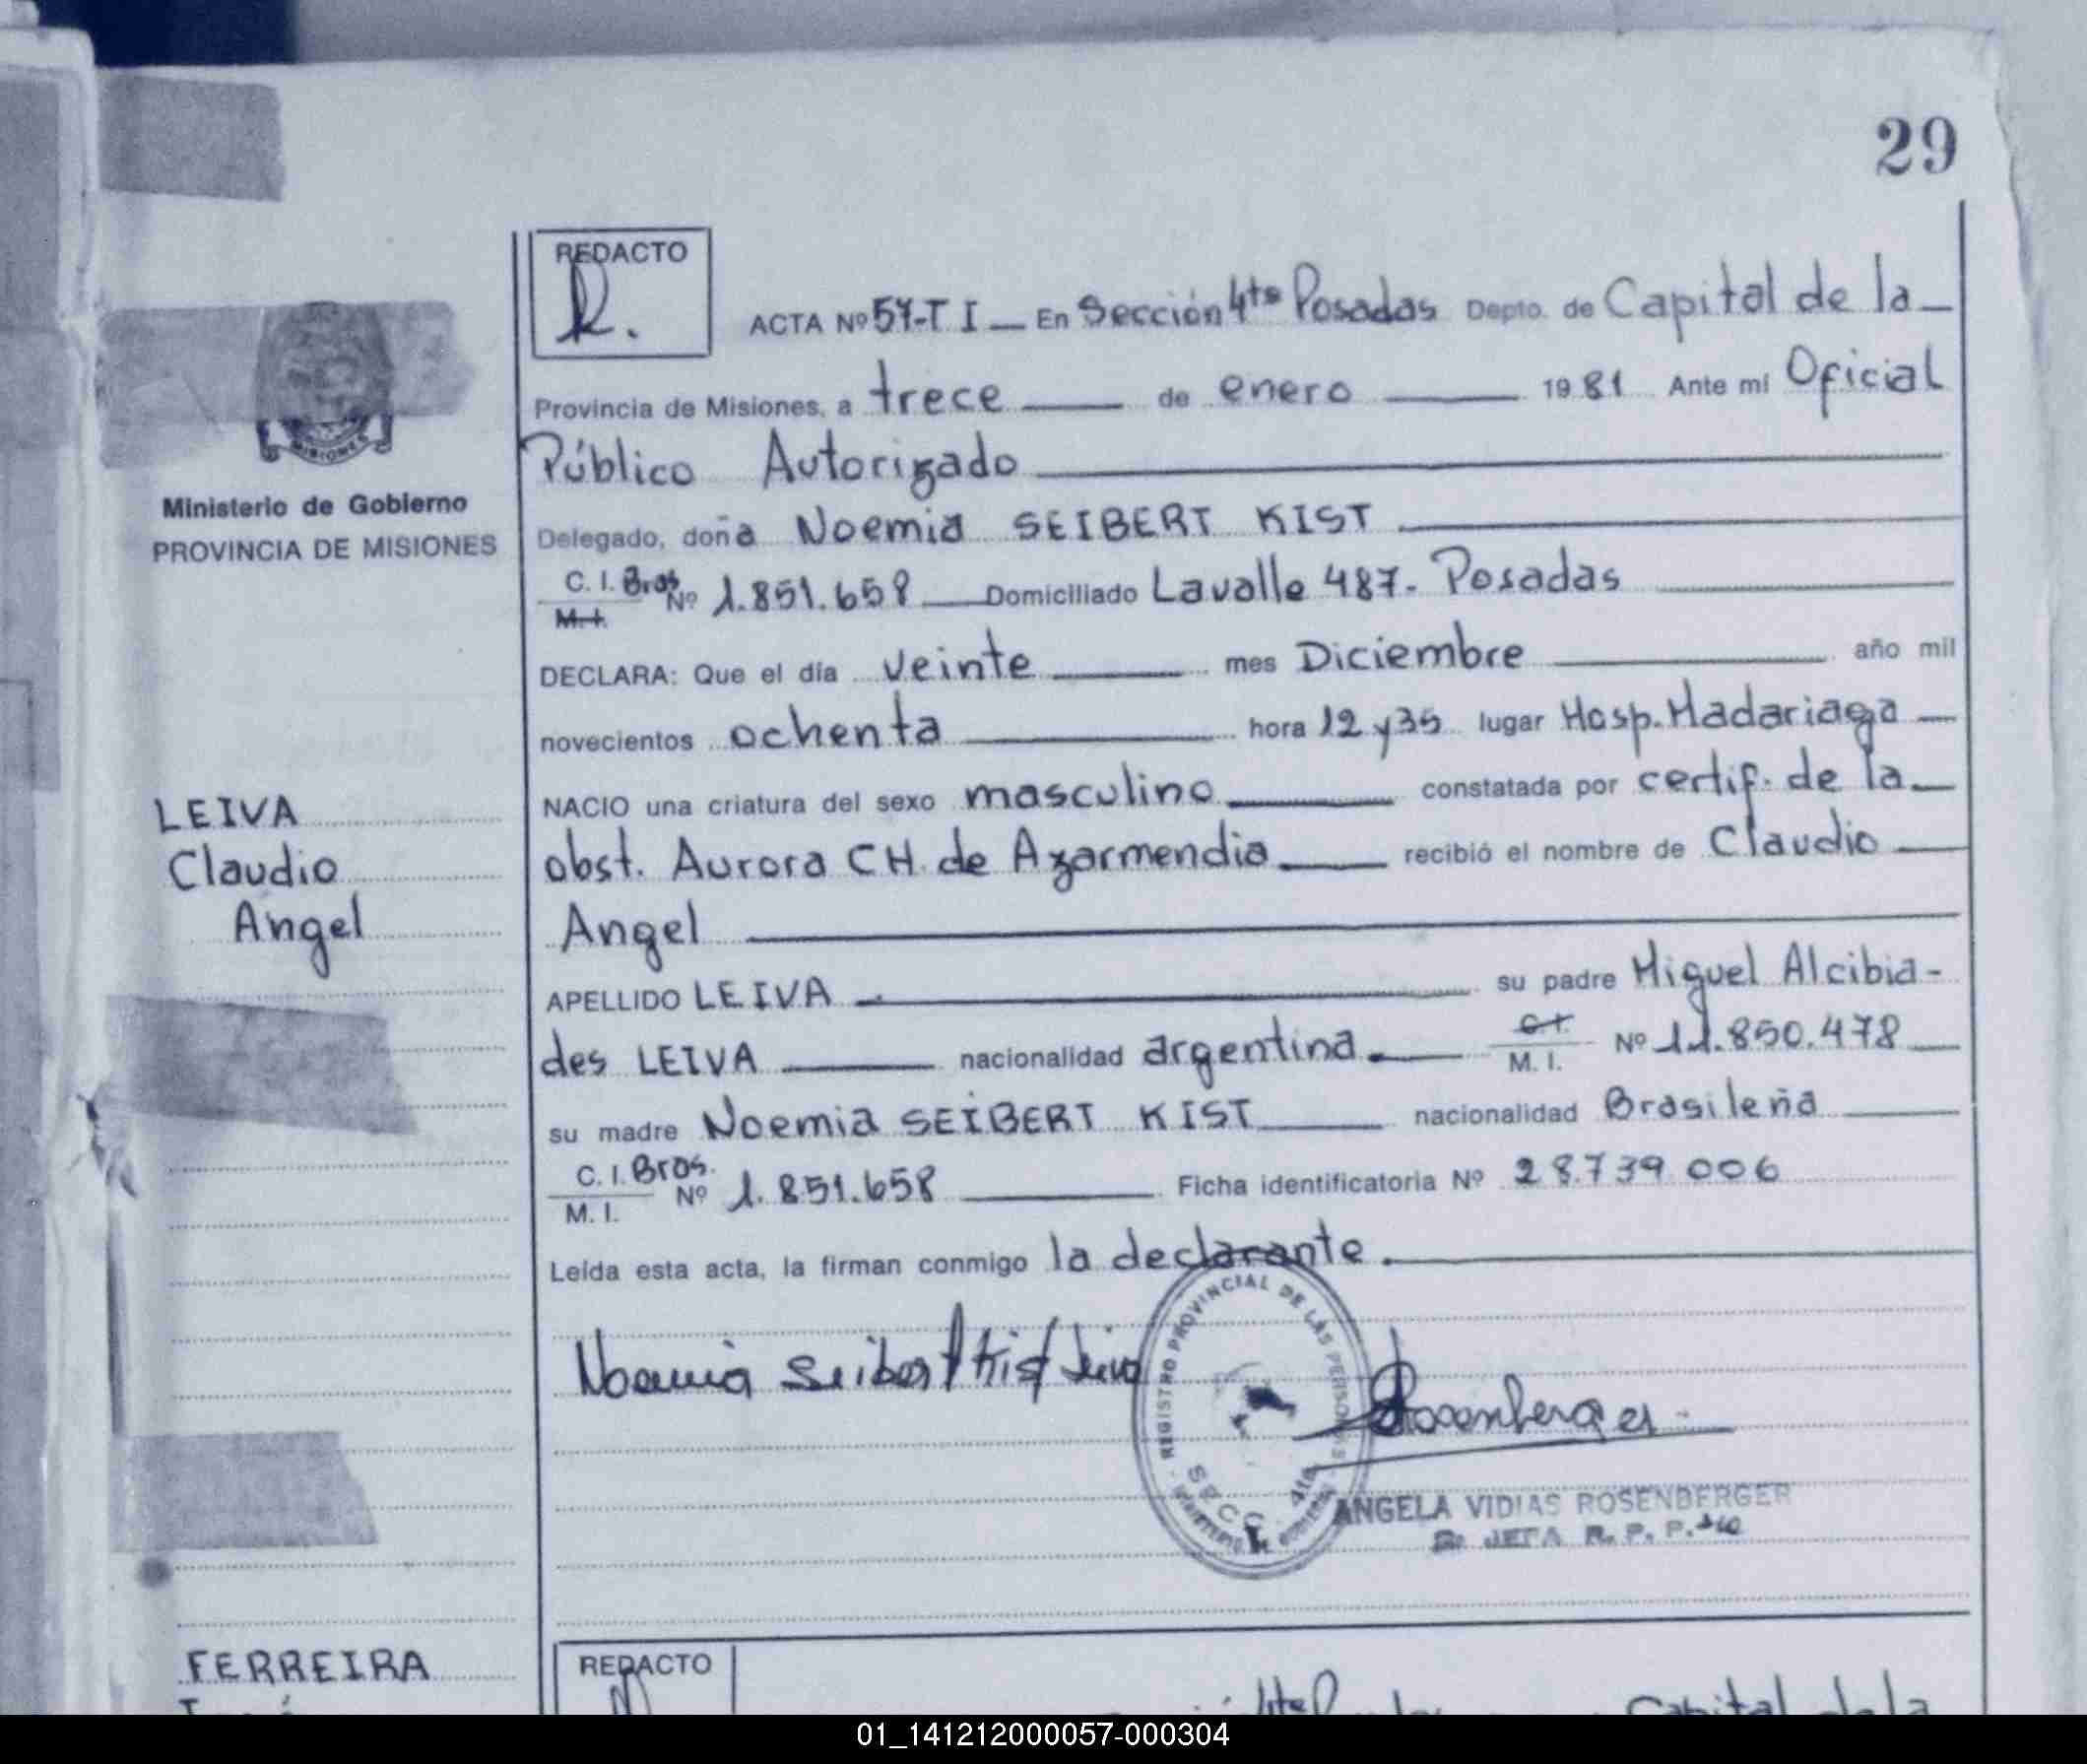 29
REDACTO
R.
ACTA Nº 57-T I — En Sección 4ta Posadas Depto. de Capital de la
Provincia de Misiones, a trece de enero 1981 Ante mí Oficial
Público Autorizado
Delegado, doña Noemia SEIBERT KIST
C. I. Bras. Nº 1.851.658 Domiciliado Lavalle 487. Posadas
M. I.
DECLARA: Que el día veinte mes Diciembre año mil
novecientos ochenta hora 12 y 35 lugar Hosp. Madariaga
NACIO una criatura del sexo masculino constatada por certif. de la
obst. Aurora CH. de Azarmendia recibió el nombre de Claudio
Angel
APELLIDO LEIVA su padre Miguel Alcibia-
des LEIVA nacionalidad argentina C. I. M. I. Nº 11.850.478
su madre Noemia SEIBERT KIST nacionalidad Brasileña
C. I. Bras. Nº 1.851.658 Ficha identificatoria Nº 28.739.006
M. I.
Leída esta acta, la firman conmigo la declarante.
Noemia Seibert Kist Leiva
Rosenberger
REGISTRO PROVINCIAL DE LAS PERSONAS
SECC. 4ta
ANGELA VIDIAS ROSENBERGER
JEFA R. P. P.
MISIONES
Ministerio de Gobierno
PROVINCIA DE MISIONES
LEIVA
Claudio
Angel
FERREIRA
REDACTO
Capital de la
01_141212000057-000304